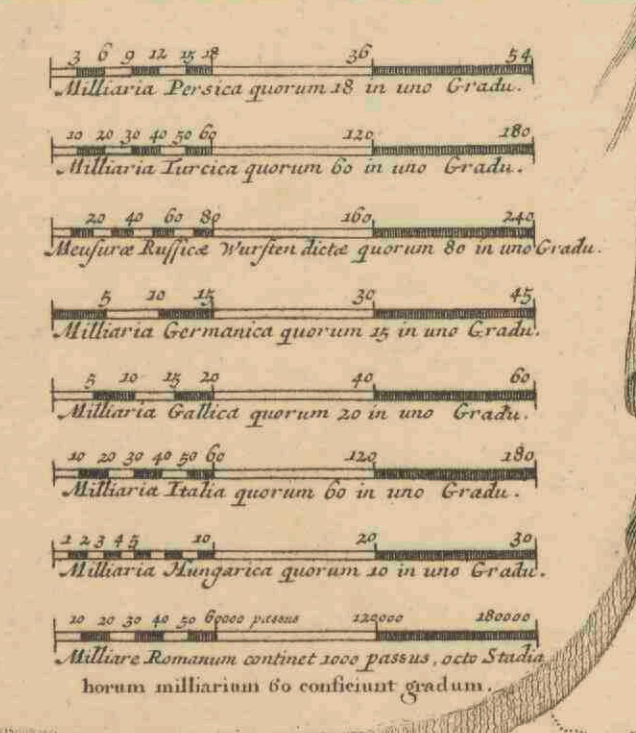 3 6 9 12 15 18 36 54
Milliaria Persica quorum 18 in uno Gradu.
10 20 30 40 50 60 120 180
Milliaria Turcica quorum 60 in uno Gradu.
20 40 60 80 160 240
Meusuræ Russicæ Wursten dictæ quorum 80 in uno Gradu.
5 10 15 30 45
Milliaria Germanica quorum 15 in uno Gradu.
5 10 15 20 40 60
Milliaria Gallica quorum 20 in uno Gradu.
10 20 30 40 50 60 120 180
Milliaria Italia quorum 60 in uno Gradu.
1 2 3 4 5 10 20 30
Milliaria Hungarica quorum 10 in uno Gradu.
10 20 30 40 50 60000 passus 120000 180000
Milliare Romanum continet 1000 passus, octo Stadia
horum milliarium 60 conficiunt gradum.